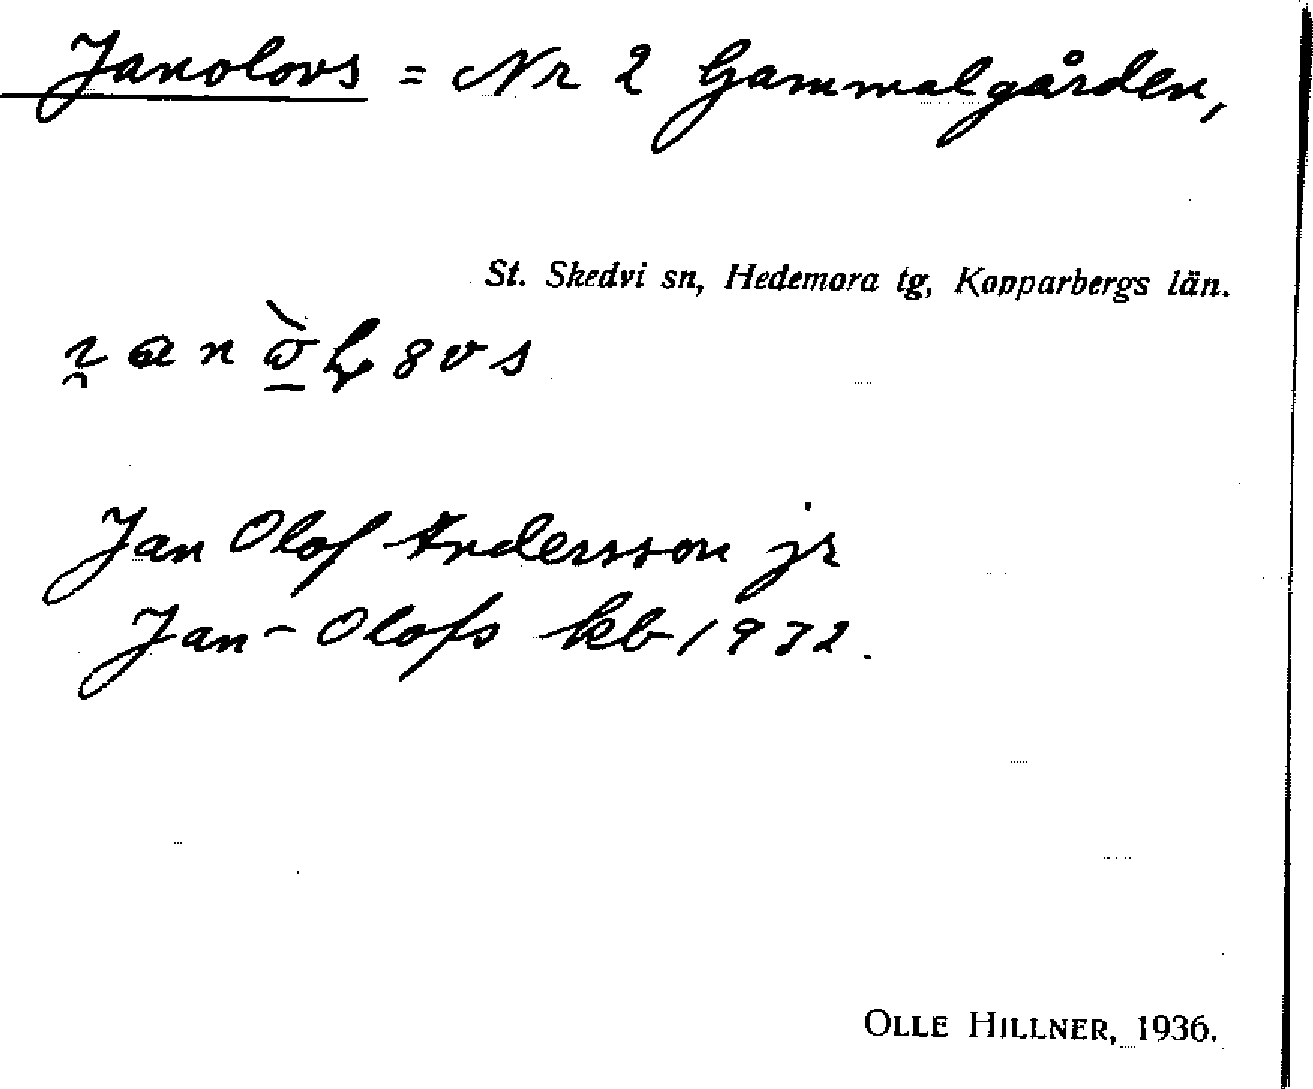 Janolovs = Nr 2 Gammalgården,
St. Skedvi sn, Hedemora tg, Kopparbergs län.
Jan Olof Andersson jr
Jan-Olofs kb 1932.
OLLE HILLNER, 1936.